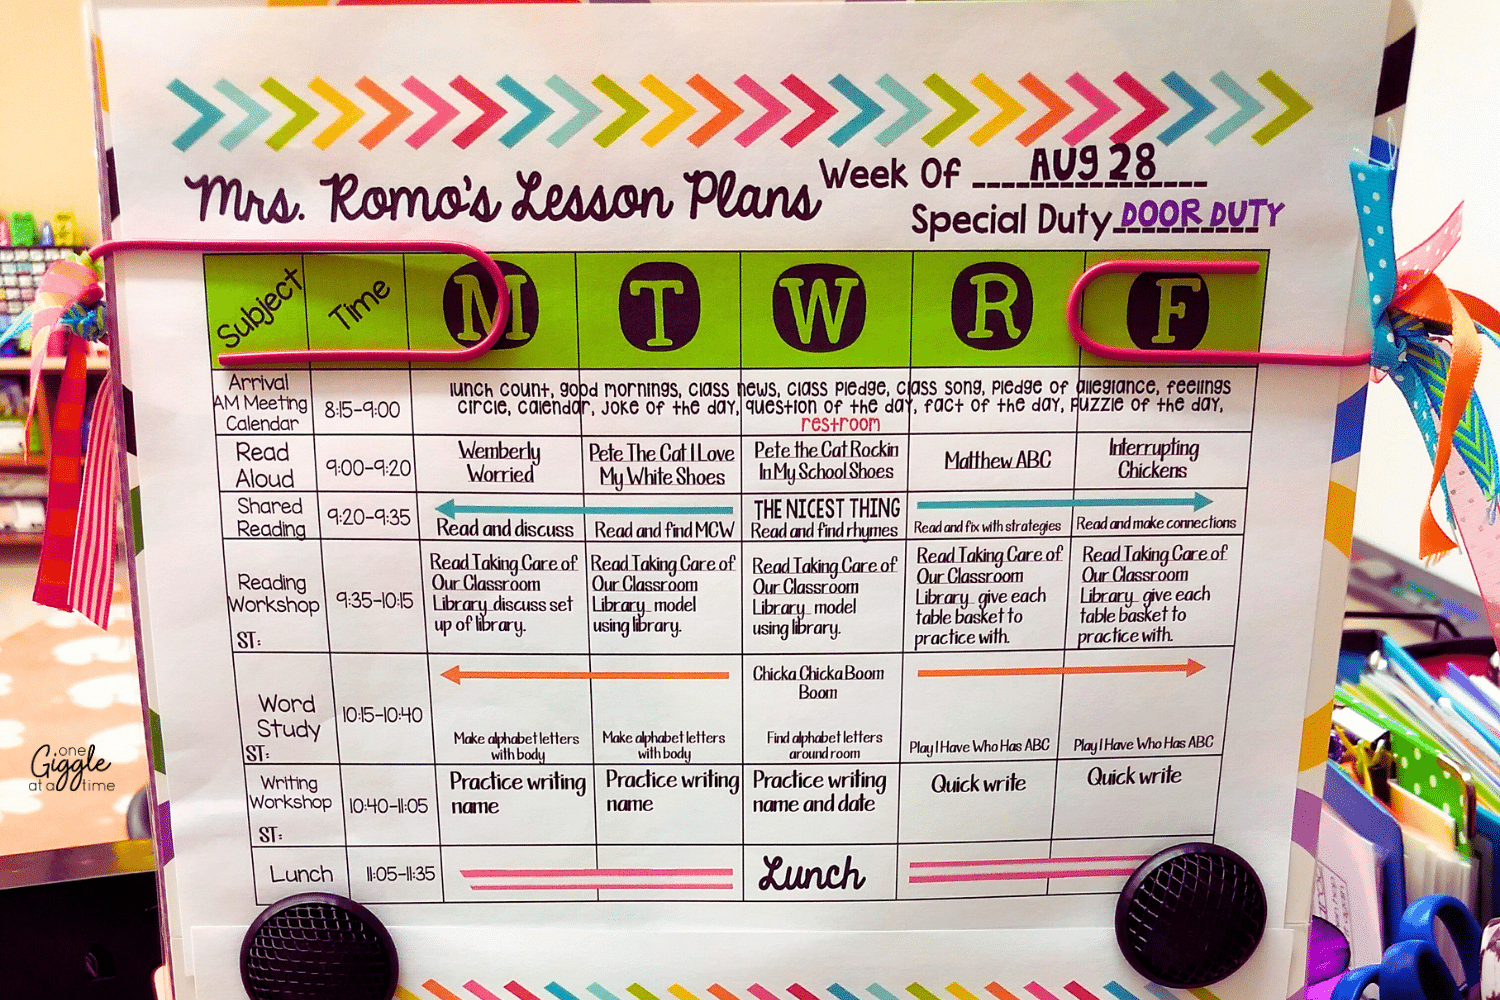 Mrs. Romo's Lesson Plans
Week Of AUG 28
Special Duty DOOR DUTY
Subject Time M T W R F
Arrival
AM Meeting
Calendar
8:15-9:00
lunch count, good mornings, class news, class pledge, class song, pledge of allegiance, feelings
circle, calendar, joke of the day, question of the day, fact of the day, puzzle of the day,
restroom
Read
Aloud
9:00-9:20
Wemberly
Worried
Pete The Cat I Love
My White Shoes
Pete the Cat Rockin
In My School Shoes
Matthew ABC
Interrupting
Chickens
Shared
Reading
9:20-9:35
THE NICEST THING
Read and discuss
Read and find MCW
Read and find rhymes
Read and fix with strategies
Read and make connections
Reading
Workshop
ST:
9:35-10:15
Read Taking Care of
Our Classroom
Library discuss set
up of library.
Read Taking Care of
Our Classroom
Library model
using library.
Read Taking Care of
Our Classroom
Library model
using library.
Read Taking Care of
Our Classroom
Library give each
table basket to
practice with.
Read Taking Care of
Our Classroom
Library give each
table basket to
practice with.
Word
Study
ST:
10:15-10:40
Chicka Chicka Boom
Boom
Make alphabet letters
with body
Make alphabet letters
with body
Find alphabet letters
around room
Play I Have Who Has ABC
Play I Have Who Has ABC
Writing
Workshop
ST:
10:40-11:05
Practice writing
name
Practice writing
name
Practice writing
name and date
Quick write
Quick write
Lunch
11:05-11:35
Lunch
one
Giggle
at a time